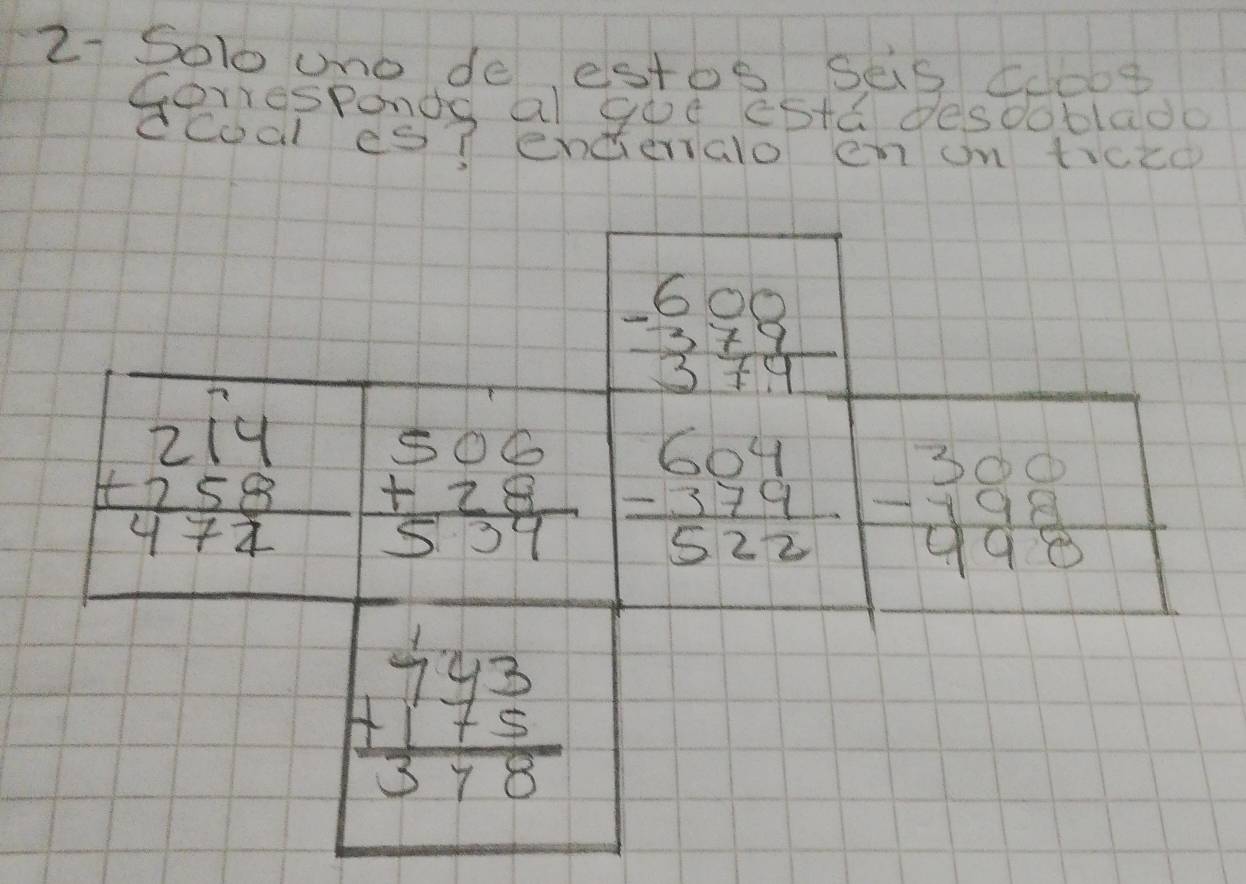 2- Solo uno de estos seis cubos
corresponde al que está desdoblado
¿cual es? encierralo en un trazo
600
-379
379
214
+258
472
506
+28
534
604
-379
522
300
-198
498
143
+175
318